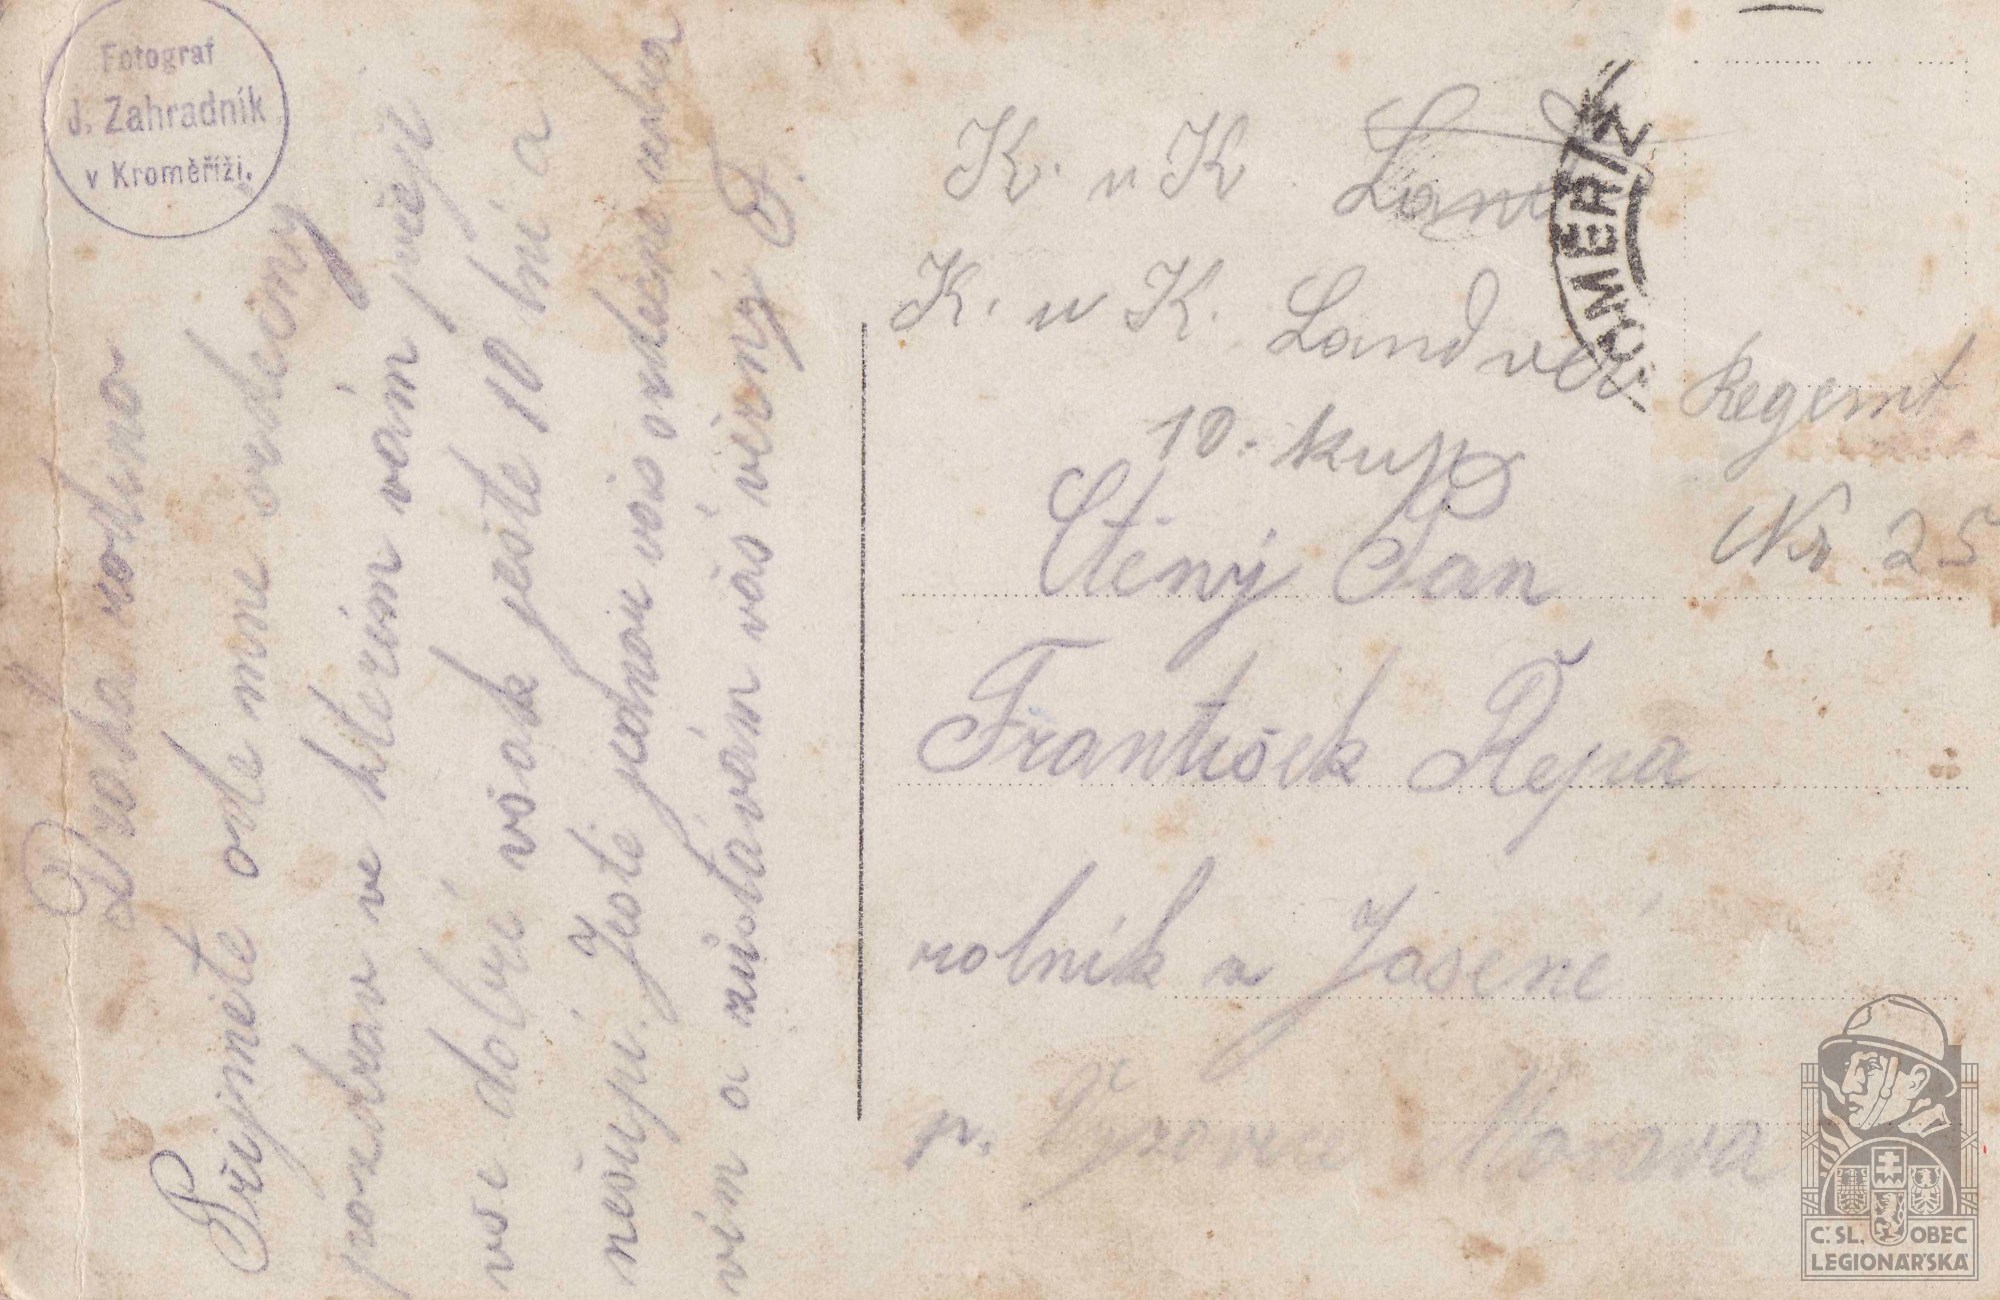 Fotograf
J. Zahradník
v Kroměříži.
Drahá rodino
Přijměte ode mne srdečný
pozdrav ve kterém vám přeji
vse dobré však ještě 10 dní a
Ještě jednou vás srdečně
vím a zůstávám vás věrný F.
K. u K
K. u K. Landver Regemt
10. kup Nr 25
Ctěný Pan
František Řepa
rolník v Jasené
p. Vyzovice Morava
OMĚŘÍŽ
Č. SL. OBEC
LEGIONÁŘSKÁ